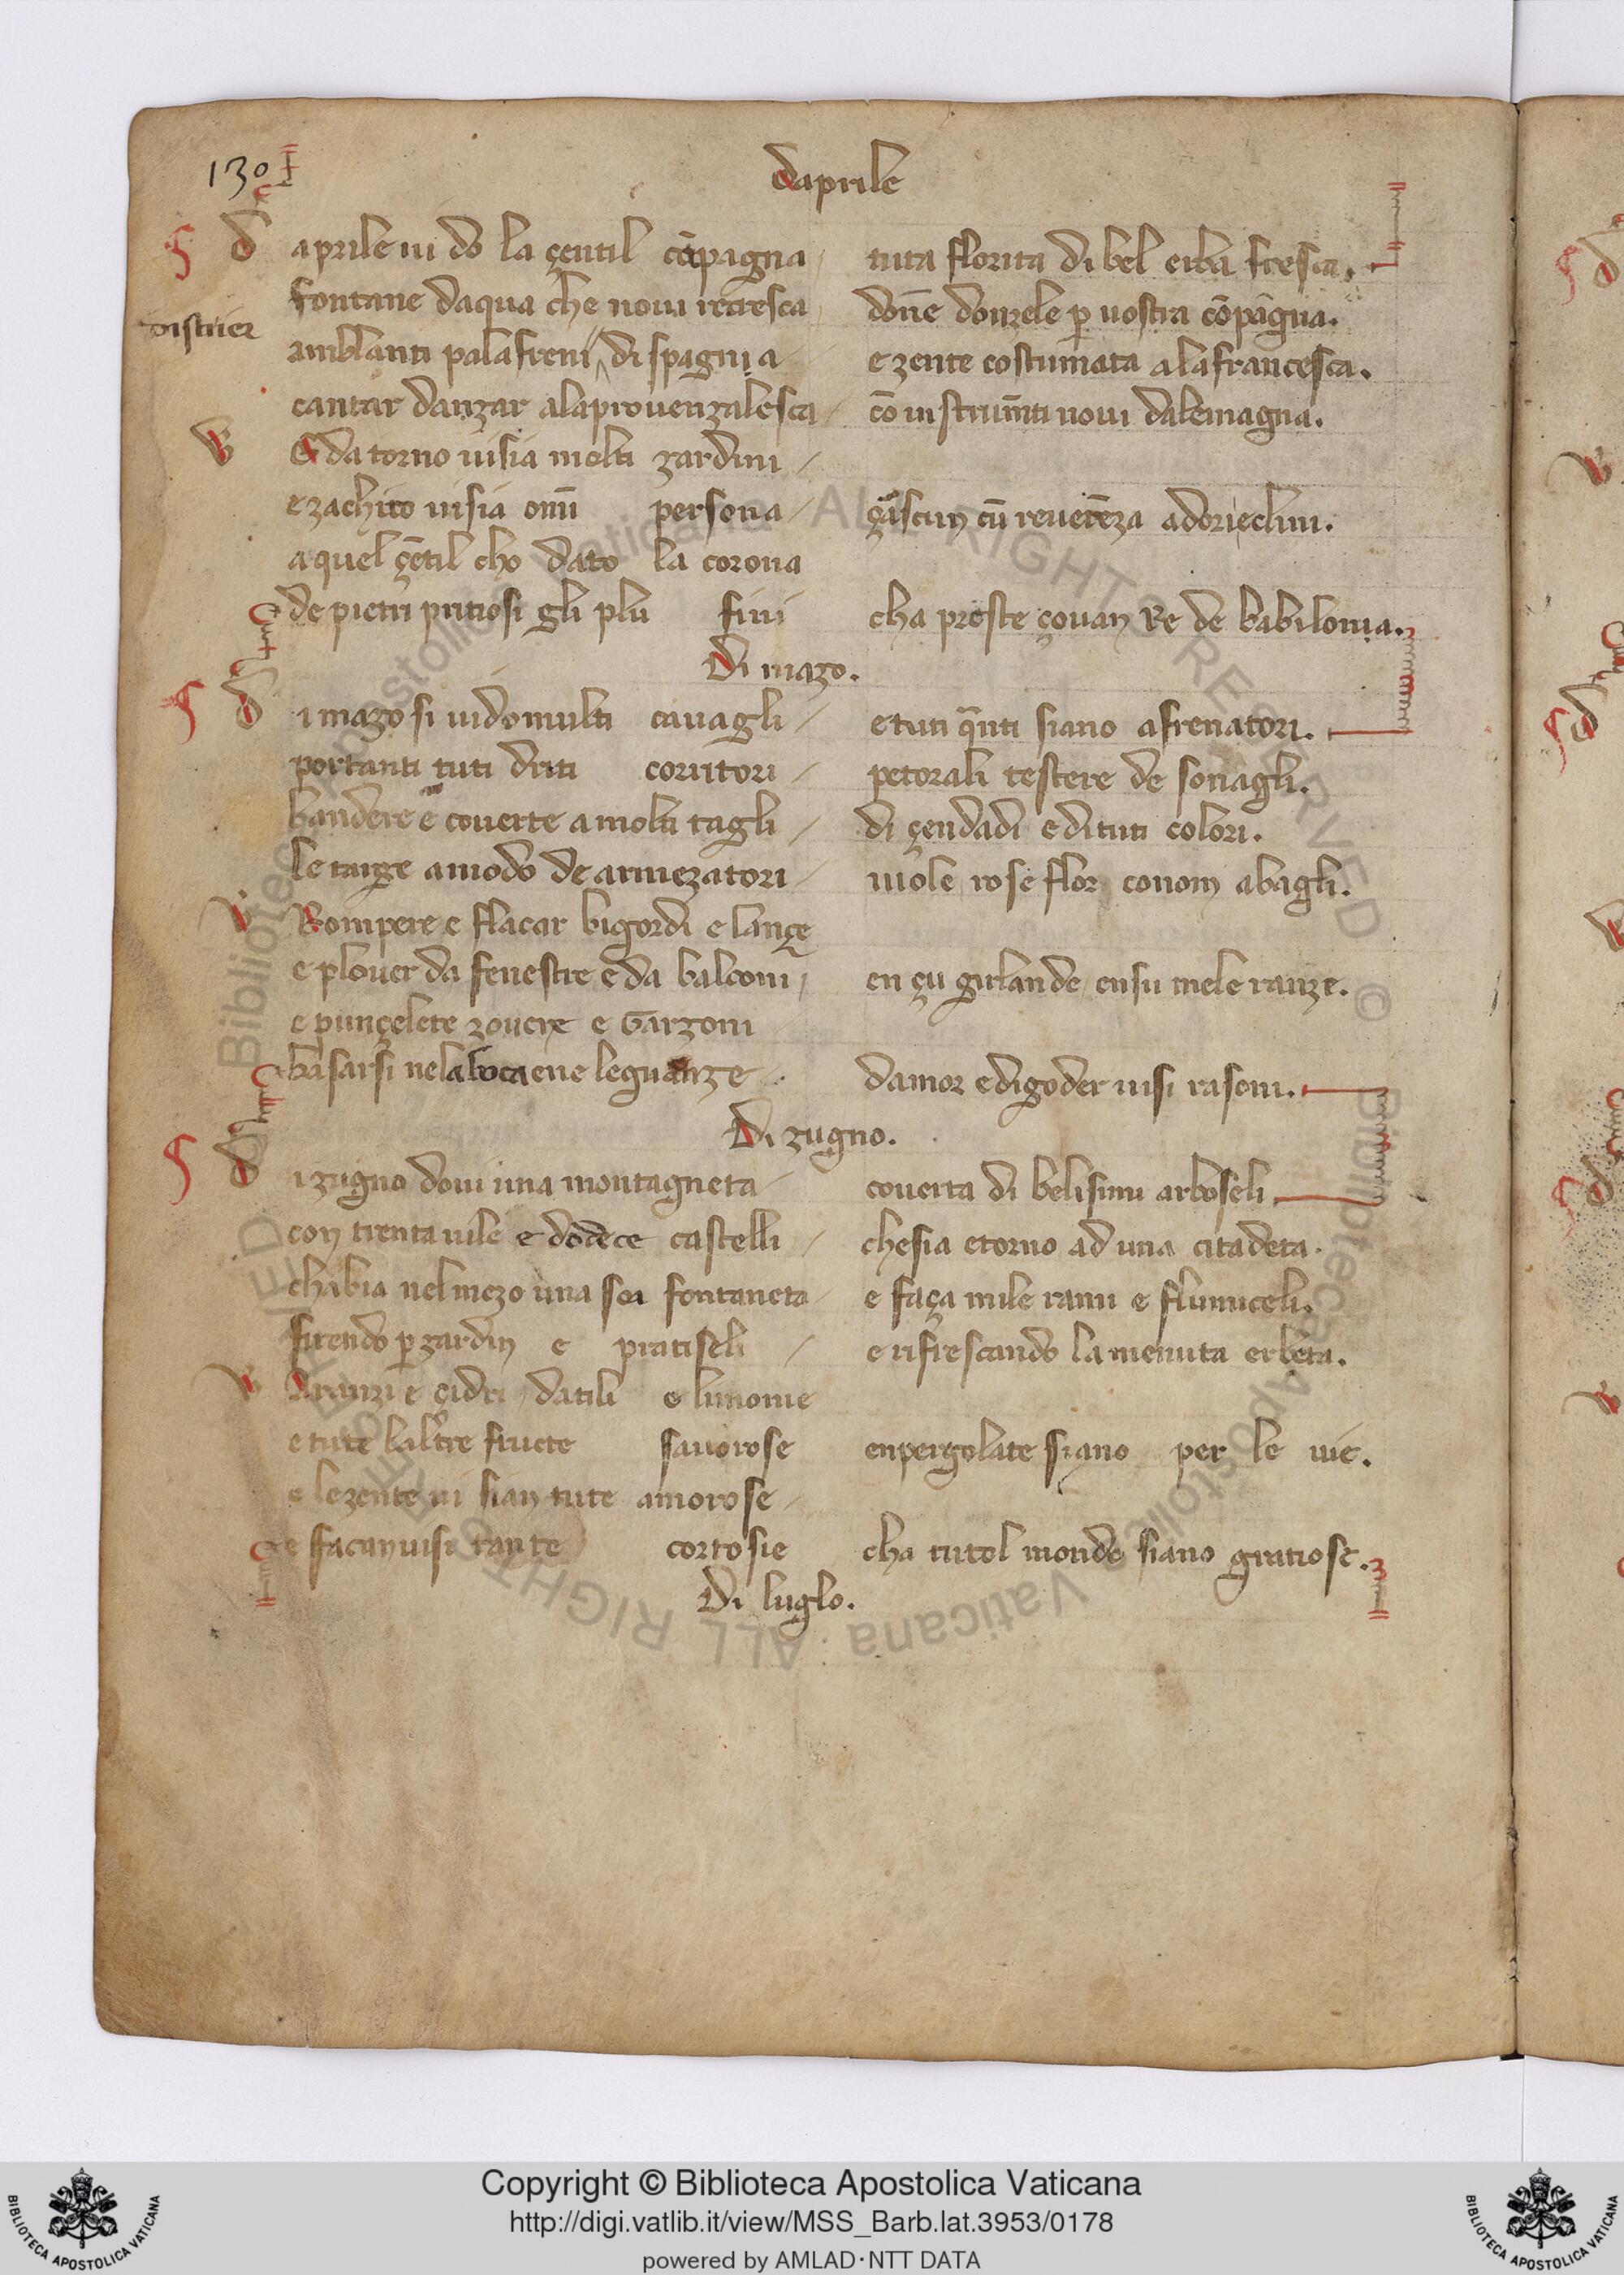 130
daprile
d aprile ui do la çentil cōpagna / tuta florita di bel erba fresca.
fontane daqua che noui recresca / don̄e donzele p̲ uostra cōpagna.
distrier
amblanti palafreni di spagnia e zente costumata alafrancesca.
cantar danzar alaprouenzalesca / cō instrum̄ti noui dalemagna.
E da torno uisia molti zardini /
e zachito uisia om̄i persona / çascun cū reuerēza adori eclini.
a quel çētil cho dato la corona
de pietri pritiosi gli plu fini cha preste çouan Re de babilonia.
Di mazo.
d i mazo si uidomulti cauagli / e tuti q̄nti siano afrenatori.
portanti tuti driti coritori / petorali testere de sonagli.
bandere e couerte a molti tagli / di çendadi e di tuti colori.
le targe a modo de armezatori / uiole rose flor conom abagli.
Rompere e flacar bigordi e lançe
e plouer da fenestre e da balconi / en çu girlande ensu mele ranze.
e punçelete zouene e Garzoni
basarsi nela boca ene leguanze damor e digoder uisi rasoni.
Di zugno.
d i zugno doui una montagneta / couerta di belisimi arboseli
con trenta uile e dodece castelli / chesia etorno ad una citadeta.
chabia nel mezo una soa fontaneta / e faça mile rami e flumiceli.
firendo p̲ zardin e pratiseli / e rifrescando la menuta erbeta.
Aranzi e çidri datili e limonie
e tute laltre fructe sauorose enpergolate siano per le uie.
e lezente ui sian tute amorose /
e facanuisi tante cortosie cha tutol mondo siano gratiose.
Di luglo.
Copyright © Biblioteca Apostolica Vaticana
http://digi.vatlib.it/view/MSS_Barb.lat.3953/0178
powered by AMLAD·NTT DATA